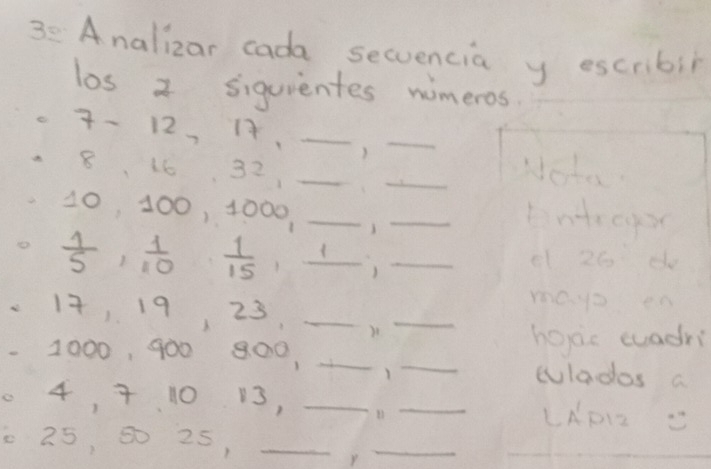 3= Analizar cada secuencia y escribir
los 2 siguientes números.
• 7 - 12, 17, __, __
• 8, 16, 32, __, __
• 10, 100, 1000, __, __
• 1/5, 1/10, 1/15, 1/__, __
• 17, 19, 23, __, __
- 1000, 900 800, __, __
• 4, 7 10 13, __, __
• 25, 50 25, __, __
Nota.
Entregar
el 26 de
mayo en
hojas cuadri
culados a
LÁPIZ